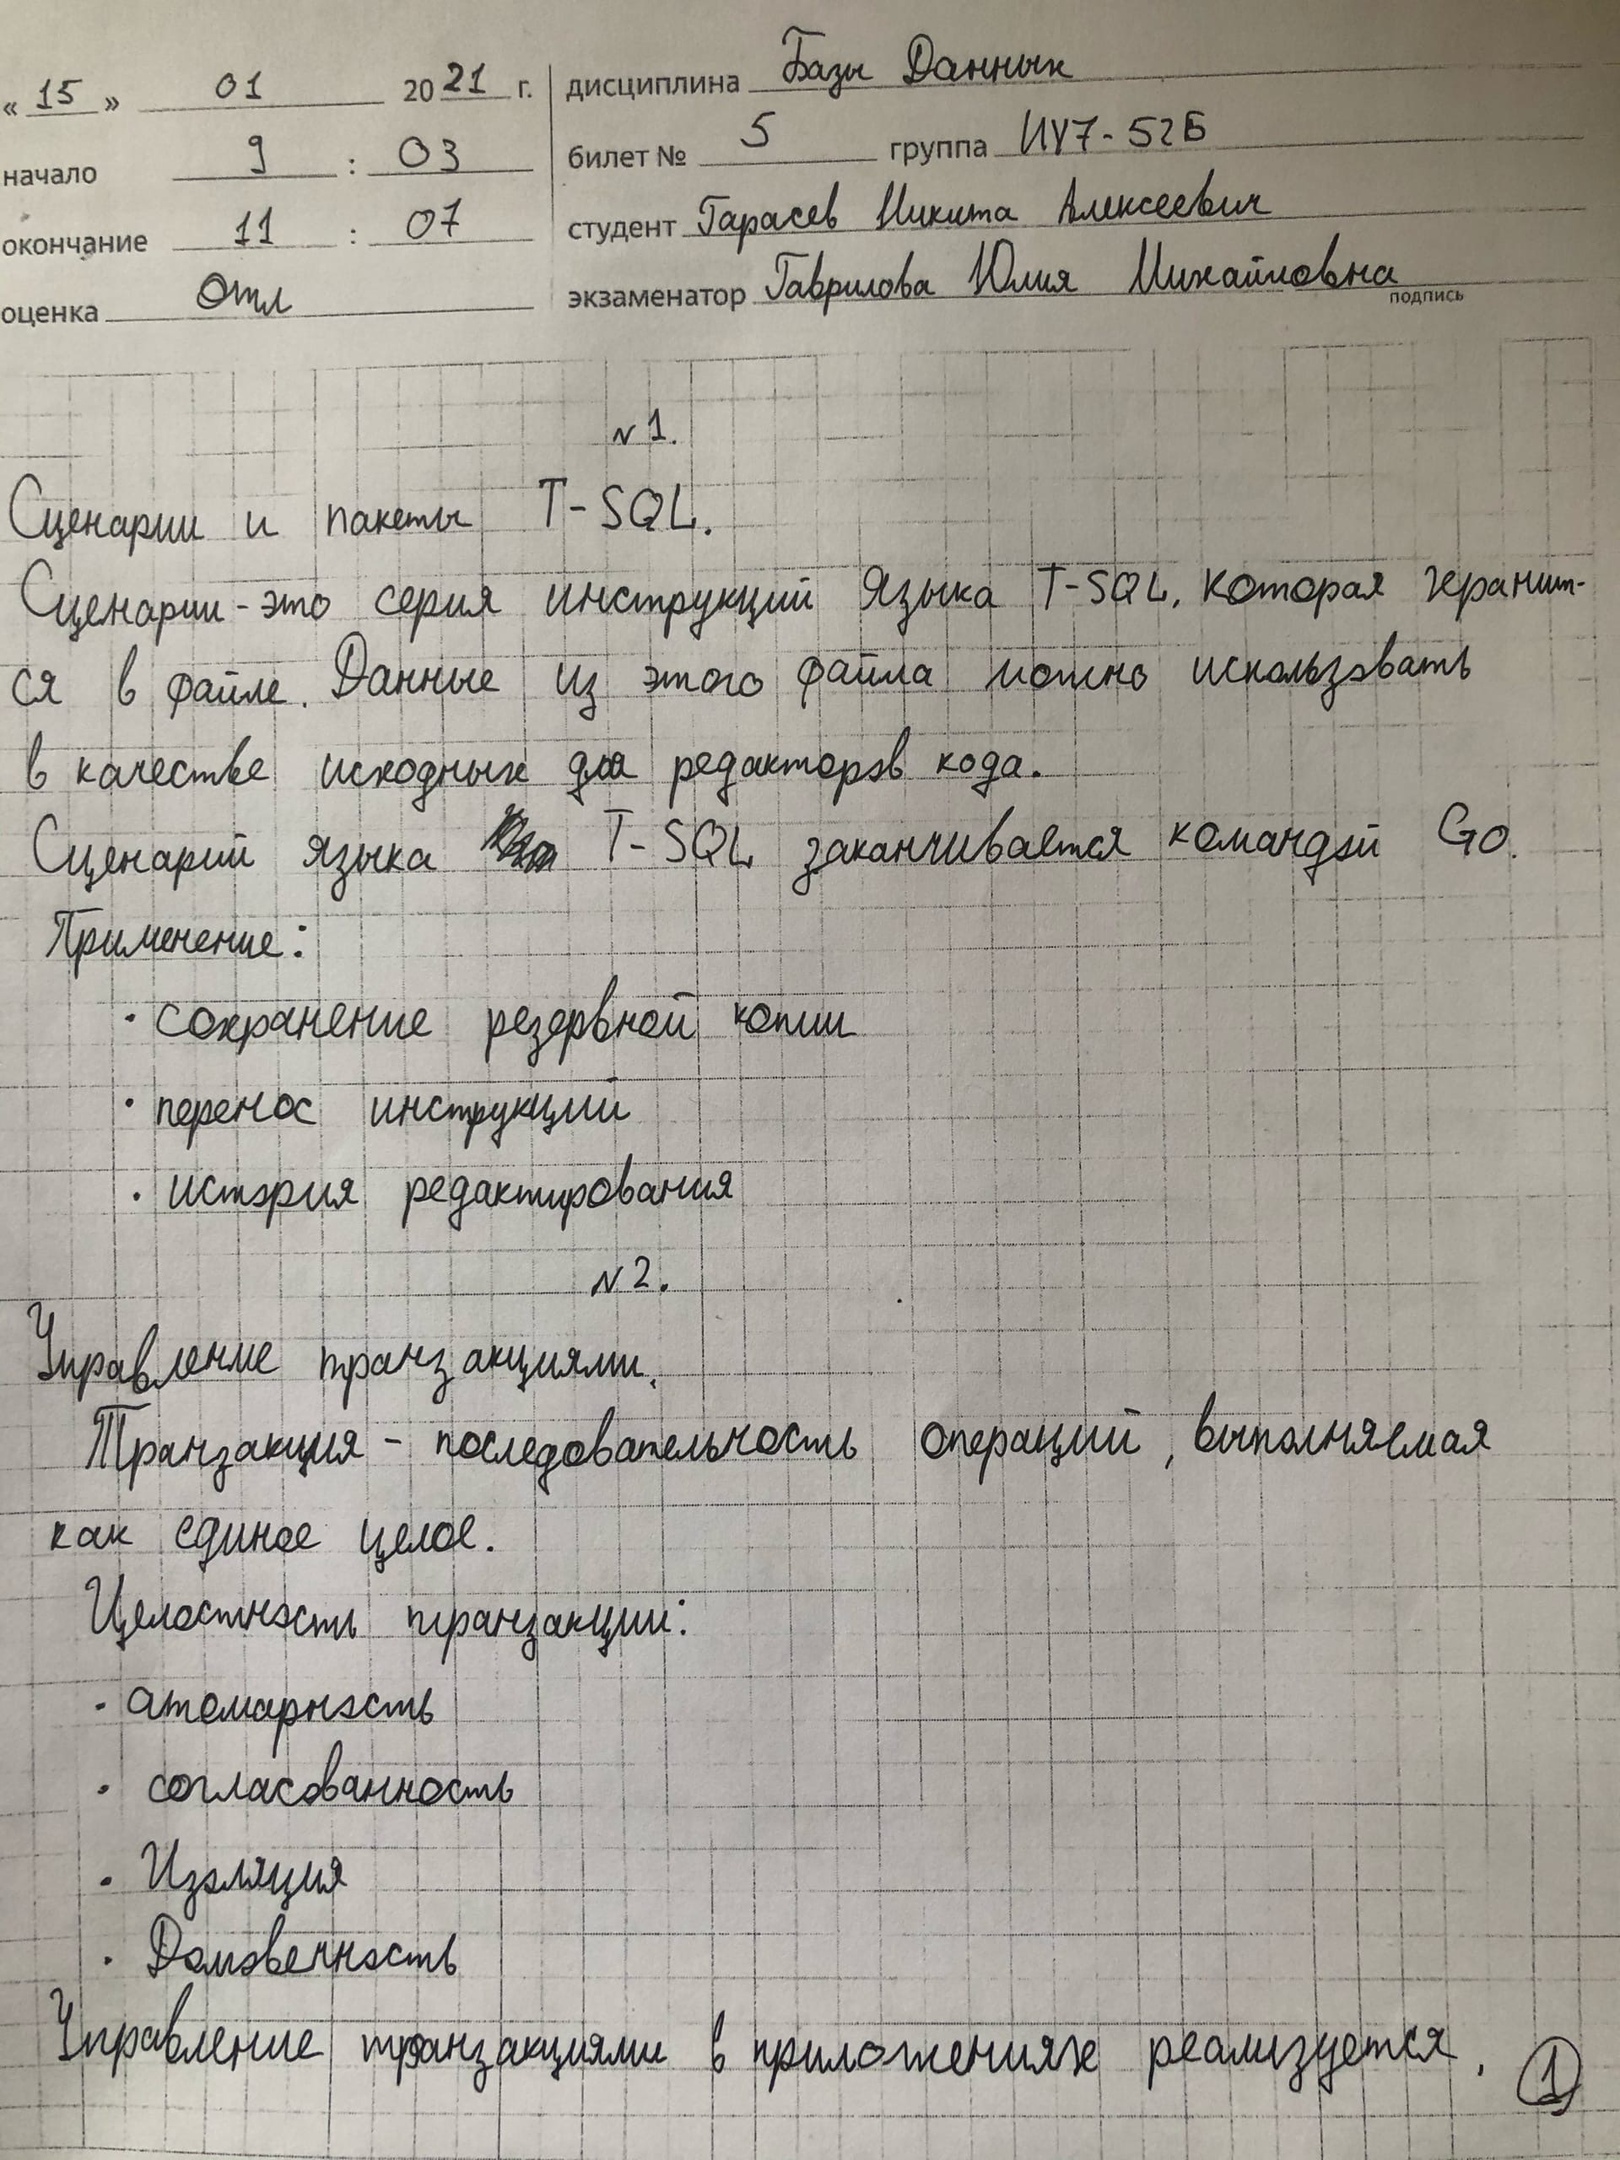 « 15 » 01 2021 г. дисциплина Базы Данных
начало 9 : 03 билет № 5 группа ИУ7-52Б
окончание 11 : 07 студент Тарасев Никита Алексеевич
оценка Отл экзаменатор Гаврилова Юлия Михайловна
подпись
№1.
Сценарии и пакеты T-SQL.
Сценарии - это серия инструкций языка T-SQL, которая хранит-
ся в файле. Данные из этого файла можно использовать
в качестве исходных для редакторов кода.
Сценарий языка T-SQL заканчивается командой GO.
Применение:
· сохранение резервной копии
· перенос инструкций
· история редактирования
№2.
Управление транзакциями.
Транзакция - последовательность операций, выполняемая
как единое целое.
Целостность транзакции:
· атомарность
· согласованность
· Изоляция
· Долговечность
Управление транзакциями в приложениях реализуется.
1